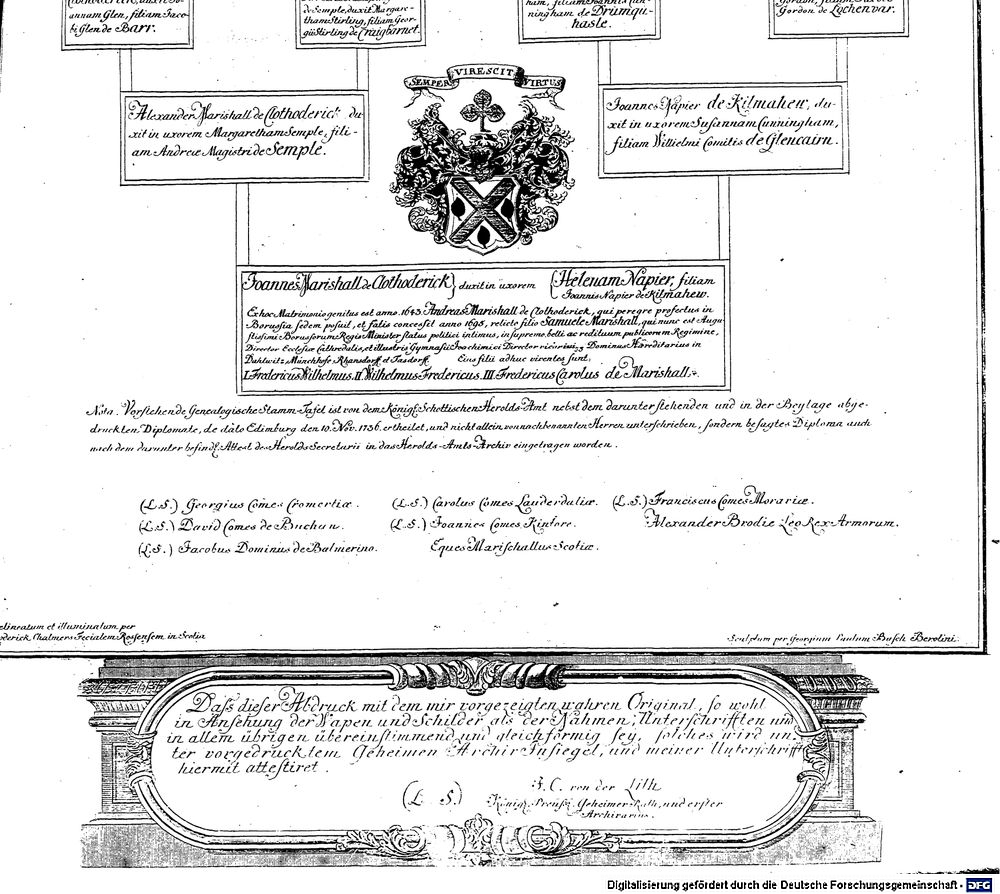 annam Glen, filiam Jaco-
bi Glen de Barr.
de Semple, duxit Margare-
tham Stirling, filiam Geor-
gii Stirling de Craigbarnet.
ningham de Drumqu-
hasle.
Gordon de Lochenvar.
SEMPER VIRESCIT VIRTUS
Alexander Marishall de Clothoderick du-
xit in uxorem Margaretham Semple, fili-
am Andreæ Magistri de Semple.
Joannes Napier de Kilmahew, du-
xit in uxorem Susannam Cunningham,
filiam Willielmi Comitis de Glencairn.
Joannes Marishall de Clothoderick } duxit in uxorem { Helenam Napier, filiam
Joannis Napier de Kilmahew.
Ex hoc Matrimonio genitus est anno 1643. Andreas Marishall de Clothoderick, qui peregre profectus in
Borussia sedem posuit, et fatis concessit anno 1695, relicto filio Samuele Marishall, qui nunc est Augu-
stissimi Borussorum Regis Minister status politici intimus, in supremo belli ac redituum publicorum Regimine,
Director Ecclesiæ Cathedralis, et illustris Gymnasii Joachimici Director Dominus Hæreditarius in
Dahlwitz, Münchhofe, Rhansdorff et Tasdorff. Eius filii adhuc viventes sunt,
I. Fredericus Wilhelmus. II. Wilhelmus Fredericus. III. Fredericus Carolus de Marishall.
Nota. Vorstehende Genealogische Stamm-Tafel ist von dem Königl. Schottischen Herolds-Amt nebst dem darunter stehenden und in der Beylage abge-
druckten Diplomate, de dato Edimburg den 10. Nov. 1736. ertheilet, und nicht allein von nachbenannten Herren unterschrieben, sondern besagtes Diploma auch
nach dem darunter befindl. Attest des Herolds Secretarii in das Herolds-Amts-Archiv eingetragen worden.
(L.S.) Georgius Comes Cromertiæ. (L.S.) Carolus Comes Lauderdaliæ. (L.S.) Franciscus Comes Moraviæ.
(L.S.) David Comes de Buchan. (L.S.) Joannes Comes Kintore. Alexander Brodie Leo Rex Armorum.
(L.S.) Jacobus Dominus de Balmerino. Eques Marischallus Scotiæ.
elineatum et illuminatum per
oderick Chalmers Fecialem Rossensem in Scotia
Sculptum per Georgium Paulum Busch Berolini.
Daß dieser Abdruck mit dem mir vorgezeigten wahren Original, so wohl
in Ansehung der Wapen und Schilder als der Nahmen, Unterschrifften und
in allem übrigen übereinstimmend und gleichförmig sey, solches wird un-
ter vorgedrucktem Geheimen Archiv Insiegel, und meiner Unterschrifft
hiermit attestiret.
(L S) J. C. von der Lith
Königl. Preußl. Geheimer Rath, und erster
Archivarius.
Digitalisierung gefördert durch die Deutsche Forschungsgemeinschaft - DFG